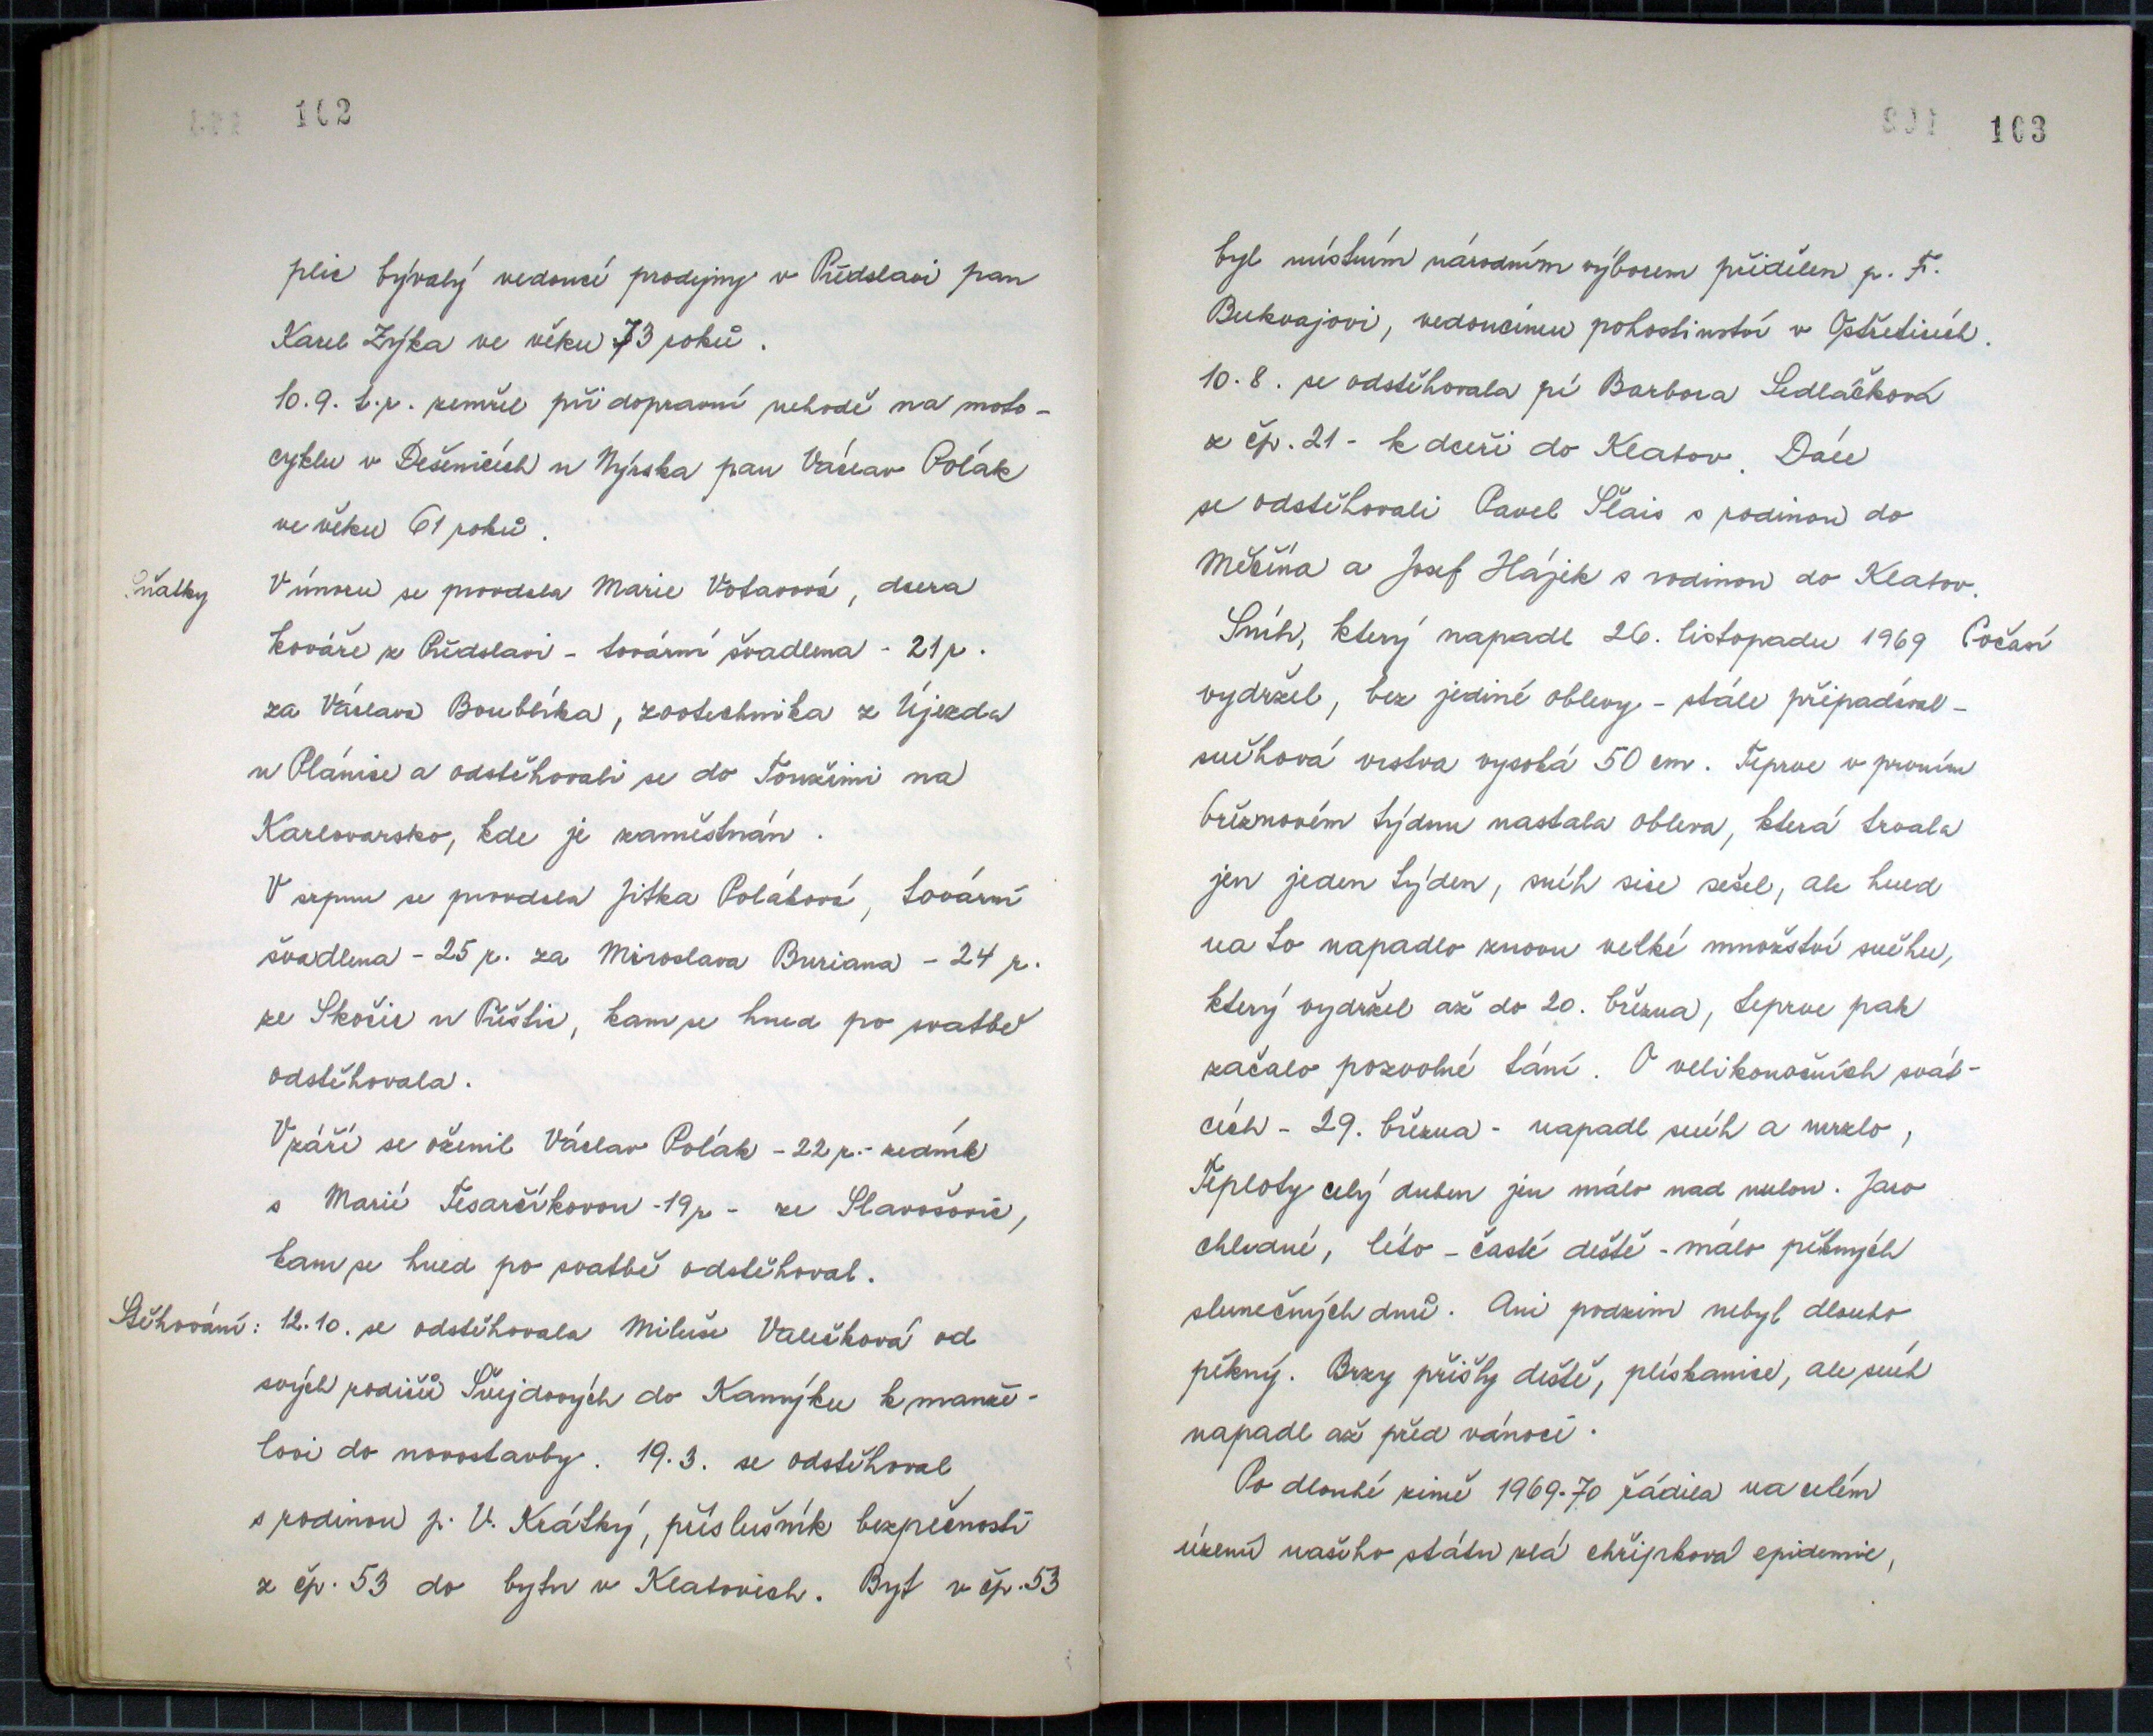 102
plic bývalý vedoucí prodejny v Předslavi pan
Karel Zýka ve věku 73 roků.
10.9. t.r. zemřel při dopravní nehodě na moto-
cyklu v Dešenicích u Nýrska pan Václav Polák
ve věku 61 roků.
Sňatky
V únoru se provdala Marie Votavová, dcera
kováře z Předslavi - tovární švadlena - 21 r.
za Václava Boublíka, zootechnika z Újezda
u Plánice a odstěhovali se do Toužimi na
Karlovarsko, kde je zaměstnán.
V srpnu se provdala Jitka Poláková, tovární
švadlena - 25 r. za Miroslava Buriana - 24 r.
ze Skočic u Přeštic, kam se hned po svatbě
odstěhovala.
V září se oženil Václav Polák - 22 r. - zedník
s Marií Tesarčíkovou - 19 r - ze Slavošovic,
kam se hned po svatbě odstěhoval.
Stěhování: 12.10. se odstěhovala Miluše Valešková od
svých rodičů Švejdových do Kamýku k manže-
lovi do novostavby. 19.3. se odstěhoval
s rodinou p. V. Krátký, příslušník bezpečnosti
z čp. 53 do bytu v Klatovich. Byt v čp. 53
103
byl místním národním výborem přidělen p. Fr.
Bukvajovi, vedoucímu pohostinství v Ostřeticích.
10.8. se odstěhovala pí Barbora Sedláčková
z čp. 21 - k dceři do Klatov. Dále
se odstěhovali Pavel Šlais s rodinou do
Měčína a Josef Hájek s rodinou do Klatov.
Sníh, který napadl 26. listopadu 1969
Počasí
vydržel, bez jediné oblevy - stále připadával -
sněhová vrstva vysoká 50 cm. Teprve v prvním
březnovém týdnu nastala obleva, která trvala
jen jeden týden, sníh sice sešel, ale hned
na to napadlo znovu velké množství sněhu,
který vydržel až do 20. března, teprve pak
začalo pozvolné tání. O velikonočních svát-
cích - 29. března - napadl sníh a mrzlo,
Teploty celý duben jen málo nad nulou. Jaro
chladné, léto - časté deště - málo pěkných
slunečných dnů. Ani podzim nebyl dlouho
pěkný. Brzy přišly deště, plískanice, ale sníh
napadl až před vánoci.
Po dlouhé zimě 1969-70 řádila na celém
území našeho státu zlá chřipková epidemie,